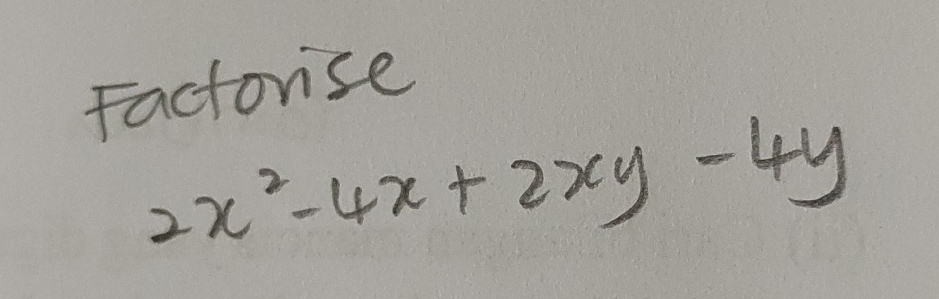 Factorise
2x² - 4x + 2xy - 4y